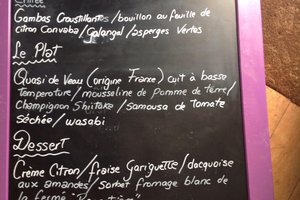 Entrée
Gambas Croustillantes/bouillon au feuille de
citron Convaba/Galangal/asperges Vertes
Le Plat
Quasi de Veau (origine France) cuit à basse
Température/mousseline de pomme de terre/
Champignon Shiitake/samousa de Tomate
Séchée/wasabi
Dessert
Crème Citron/fraise Gariguette/dacquoise
aux amandes/sorbet fromage blanc de
la ferme